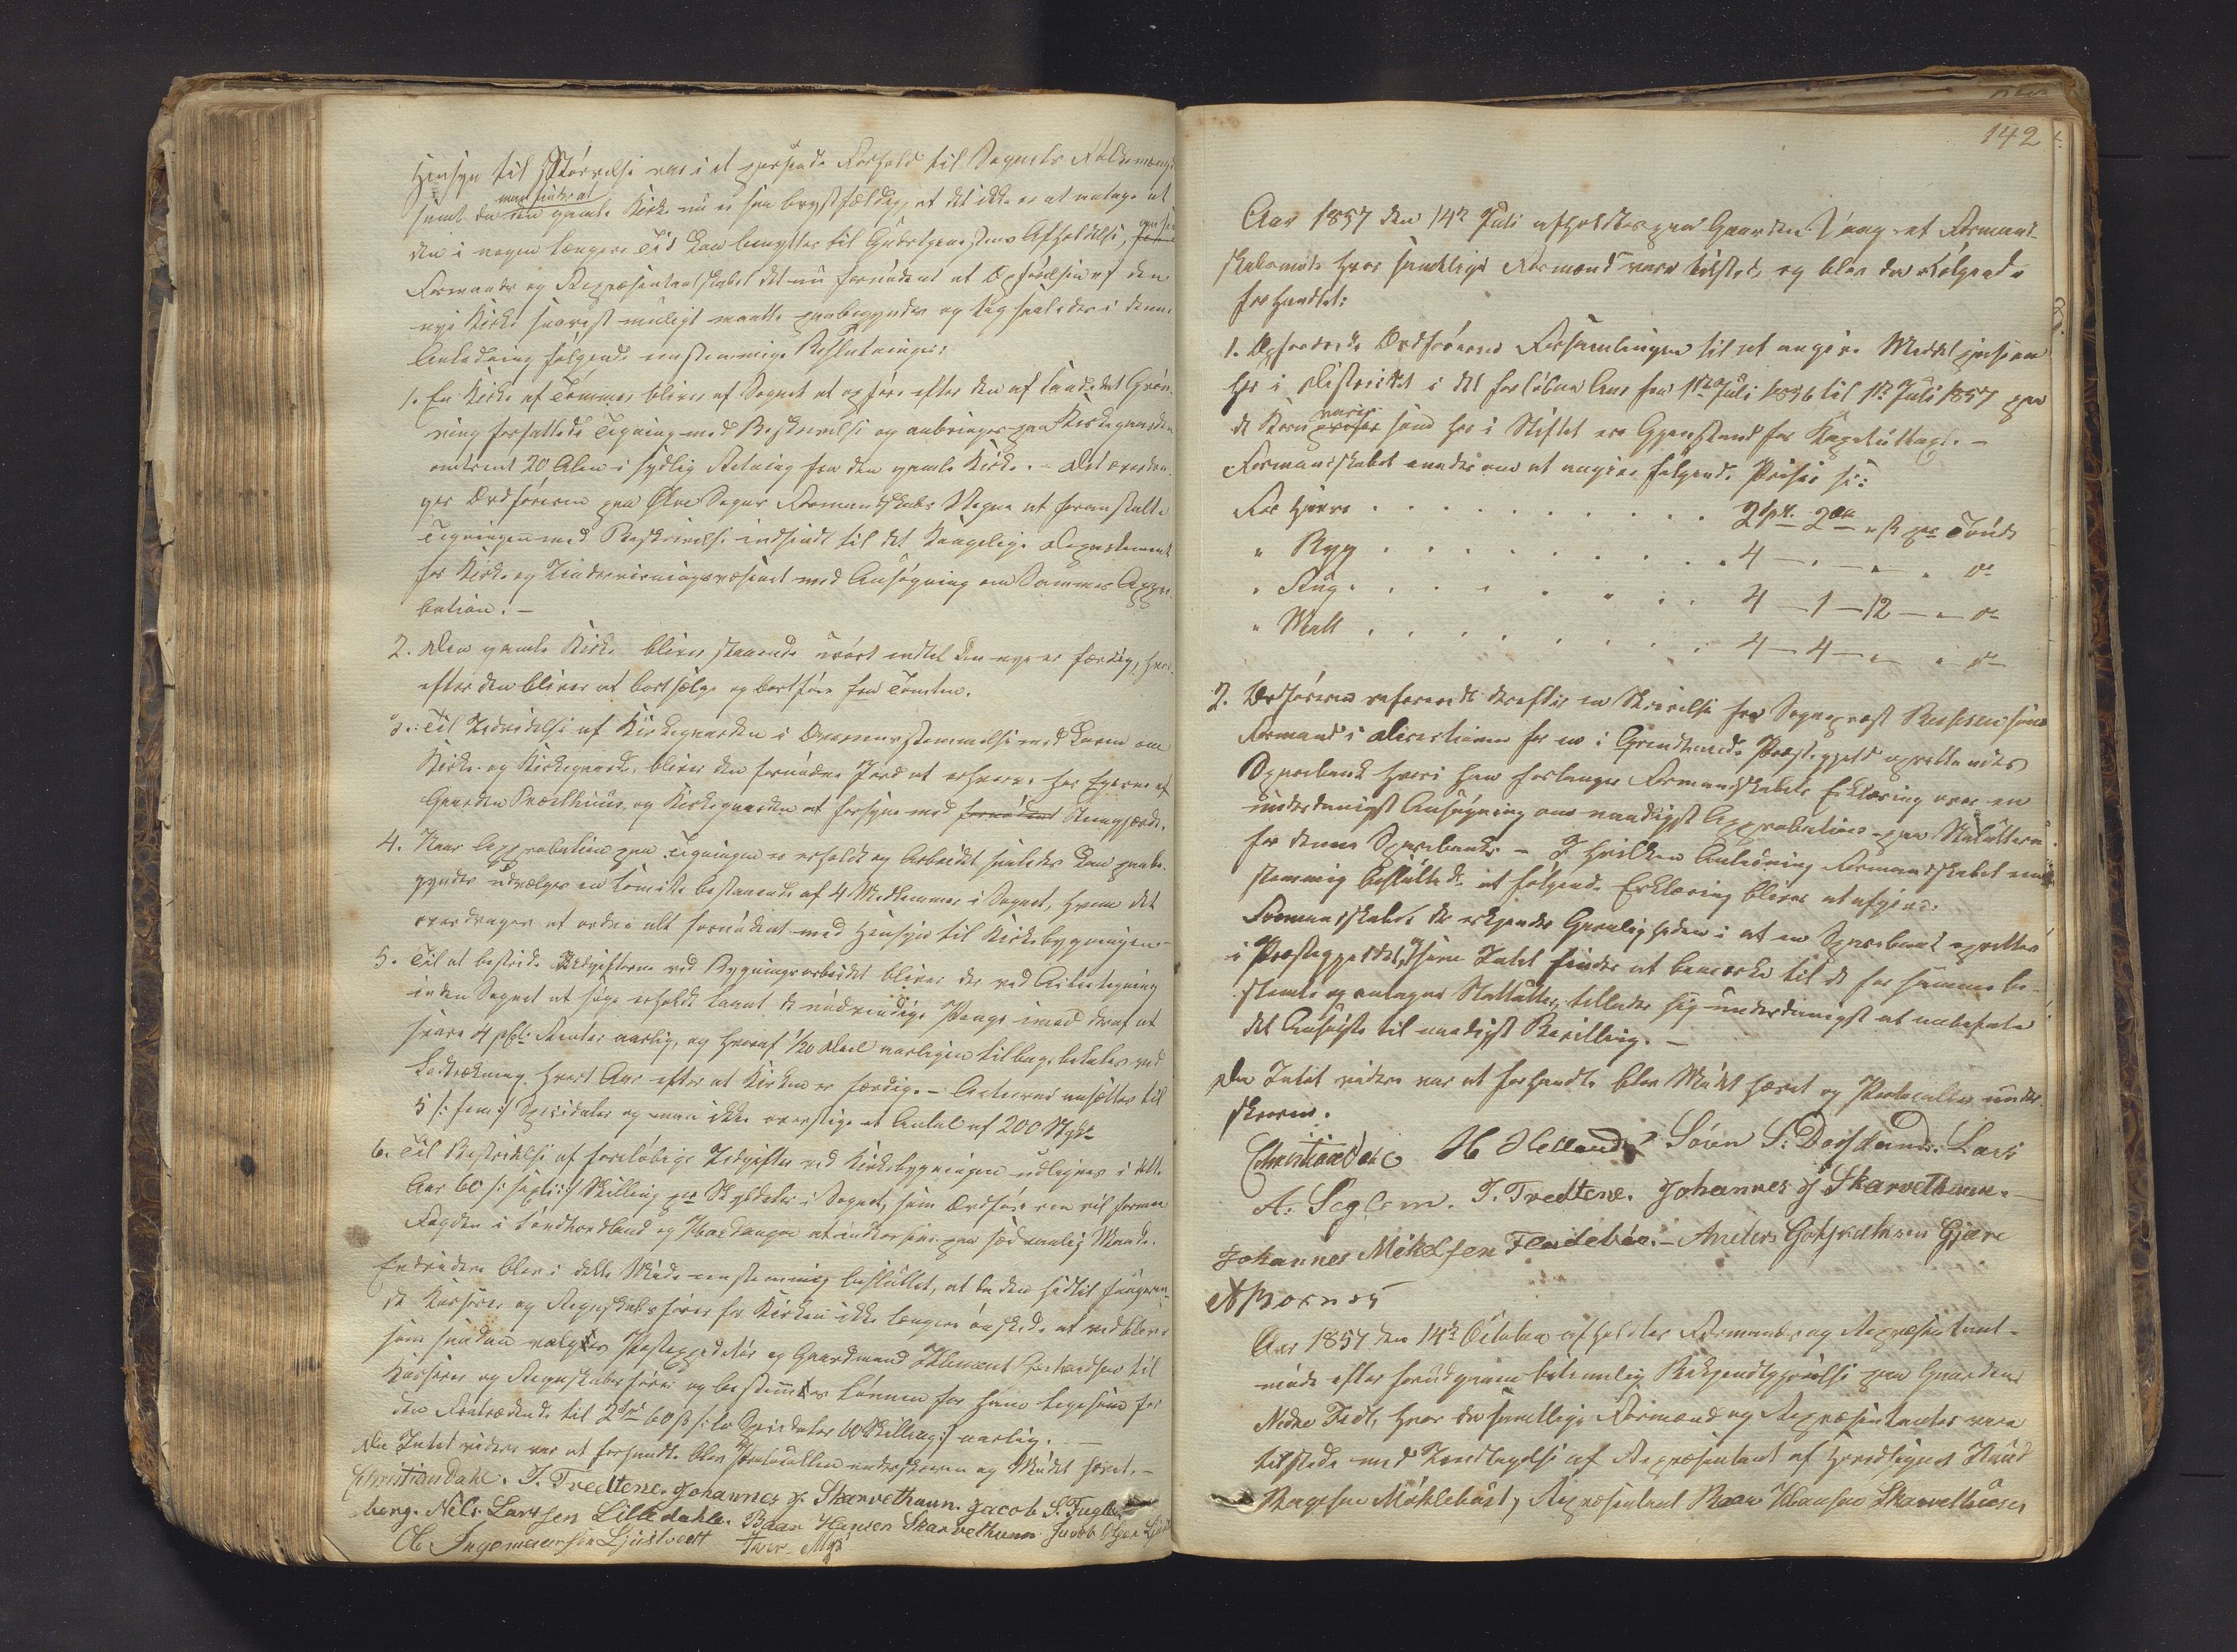 Hensyn til Størrelse var i et passende Forhold til Sognets Folkemængde
man finder at
samt da den gamle Kirke nu er saa brystfældig, at det ikke er at antage at
den i nogen længere Tid kan benyttes til Gudstjenestens Afholdelse,
Formands og Repræsentantskabet det nu fornødent at Opførelsen af den
nye Kirke snarest muligt maatte paabegyndes og tog saaledes i denne
Anledning følgende enstemmige Beslutninger:
1. En Kirke af Tømmer bliver af Sognet at opføre efter den af Landedet Grøn-
ning forfattede Tegning med Beskrivelse og anbringes paa Kirkegaarden
omtrent 20 Alen i sydlig Retning fra den gamle Kirke. – Det overdra-
ges Ordføreren paa Øvre Sogns Formandskabs Vegne at foranstalte
Tegningen med Beskrivelse indsendt til det Kongelige Departement
for Kirke og Underviisningsvæsenet med Ansøgning om Sammes Appro-
bation. –
2. Den gamle Kirke bliver staaende urørt indtil den nye er færdig, hvor-
efter den bliver at bortsælge og bortføre fra Tomten.
3. Til Udvidelse af Kirkegaarden i Overeensstemmelse med Loven om
Kirke og Kirkegaard, bliver den fornødne Jord at erhverve hos Eierne af
Gaarden Præsthuus, og Kirkegaarden at forsyne med fornødent Steengjærde.
4. Naar Approbation paa Tegningen er erholdt og Arbeidet saaledes kan paabe-
gyndes udvælges en Komite bestaaende af 4 Medlemmer i Sognet, hvem det
overdrages at ordne alt fornødent med Hensyn til Kirkebygningen. –
5. Til at bestride Udgifterne ved Bygningsarbeidet bliver der ved Actietegning
inden Sognet at søge erholdt laant de nødvendige Penge imod deraf at
svare 4 pCt. Renter aarlig, og hvoraf 1/20 Deel aarligen tilbagebetales ved
Lodtrækning hvert Aar efter at Kirken er færdig. – Actierne ansættes til
5 /: fem :/ Speciedaler og maa ikke overstige et Antal af 200 Stykk.
6. Til Bestridelse af foreløbige Udgifter ved Kirkebygningen udlignes i dette
Aar 60 /: sexti :/ Skilling pr Skylddaler i Sognet, som Ordføreren vil formaa
Fogden i Søndhordland og Hardanger at inkassere paa sædvanlig Maade.
Endvidere blev i dette Møde eenstemmig besluttet, at da den hidtil fungeren-
de Kasserer og Regnskabsfører for Kirken ikke længere ønskede at vedblive
som saadan vælges Postexpeditør og Gaardmand Klement Gerhardsen til
Kasserer og Regnskabsfører og bestemtes Lønnen for ham ligesom for
den Fratrædende til 2 Spd 60 ß /: to Speciedaler 60 Skilling :/ aarlig. –
Da Intet videre var at forhandle blev Protocollen underskreven og Mødet hævet. –
Christian Dahl. T. Tredtene. Johannes J. Skarvethuun. Jacob S. Fugle-
berg. Nils Larssen Lilledahle. Baar Hansen Skarvethuun Jacob
Ole Ingemaarsen Ljustveitt Iver Mo
142
Aar 1857 den 14de Juli afholdtes paa Gaarden Vang et Formand-
skabsmøde hvor samtlige Formænd vare tilstede og blev da Følgende
forhandlet:
1. Opfordrede Ordføreren Forsamlingen til at angive Middelprisen
her i Distriktet i det forløbne Aar fra 1ste Juli 1856 til 1ste Juli 1857 paa
varer
de Korn som her i Stiftet ere Gjenstand for Kapitulstaxt. –
Formandskabet enedes om at angive følgende Priser s:
For Havre . . . . . . . . . 2 Spd. 2 Ort " ß pr Tønde
" Rug . . . . . . . . . 4 — " — " — " do
" Byg . . . . . . . . 4 — 1 — 12 — " do
" Malt . . . . . . . . 4 — 4 — " — " do
2. Ordføreren refererede derefter en Skrivelse fra Sogneprest Rusten som
Formand i Directionen for en i Graven Præstegjeld oprettendes
Sparebank hvori han forlanger Formandskabets Erklæring over en
underdanigst Ansøgning om naadigst Approbation paa Statuterne
for denne Sparebank – I hvilken Anledning Formandskabet een-
stemmig besluttede at følgende Erklæring bliver at afgive:
Formandskabet der erkjender Gavnligheden i at en Sparebank oprettes
i Præstegjeldet, Intet finder at bemærke til de for samme be-
stemte og antagne Statutter, tillader sig underdanigst at anbefale
det Ansøgte til naadigst Bevilling. –
Da Intet videre var at forhandle blev Mødet hævet og Protocollen under-
skreven.
Christian Dahl H Helland Sören S: Dosseland. Lars
A. Seglem. T. Tredtene. Johannes J Skarvethuun. –
Johannes Mikelsen Flatebøe. – Anders Gotskalksen Gjære
A Børnes
Aar 1857 den 14de Octobr afholdtes Formands og Repræsentant-
møde efter forudgaaen betimelig Bekjendtgjørelse paa Gaarden
Nedre Fedt, hvor da samtlige Formænd og Repræsentanter vare
tilstede med Undtagelse af Repræsentant af Knud
Baggesen Møklebust, Repræsentant Baar Hansen Skarvethuun